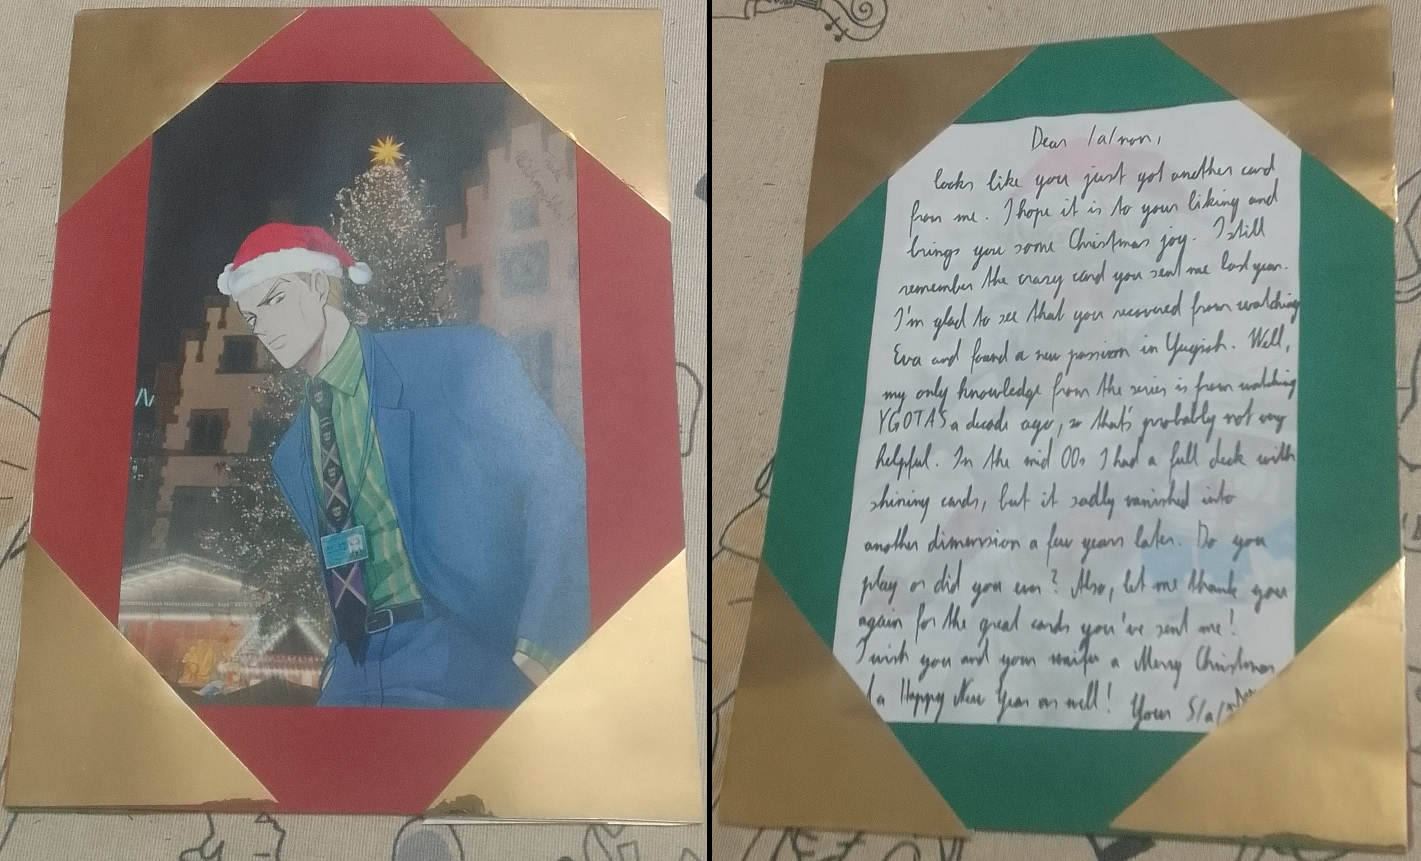 Dear /a/non,
looks like you just got another card
from me. I hope it is to your liking and
brings you some Christmas joy. I still
remember the crazy card you sent me last year.
I'm glad to see that you recovered from watching
Eva and found a new passion in Yugioh. Well,
my only knowledge from the series is from watching
YGOTAS a decade ago, so that's probably not very
helpful. In the mid 00s I had a full deck with
shining cards, but it sadly vanished into
another dimension a few years later. Do you
play or did you ever? Also, let me thank you
again for the great cards you've sent me!
I wish you and your waifu a Merry Christmas
a Happy New Year as well! Your